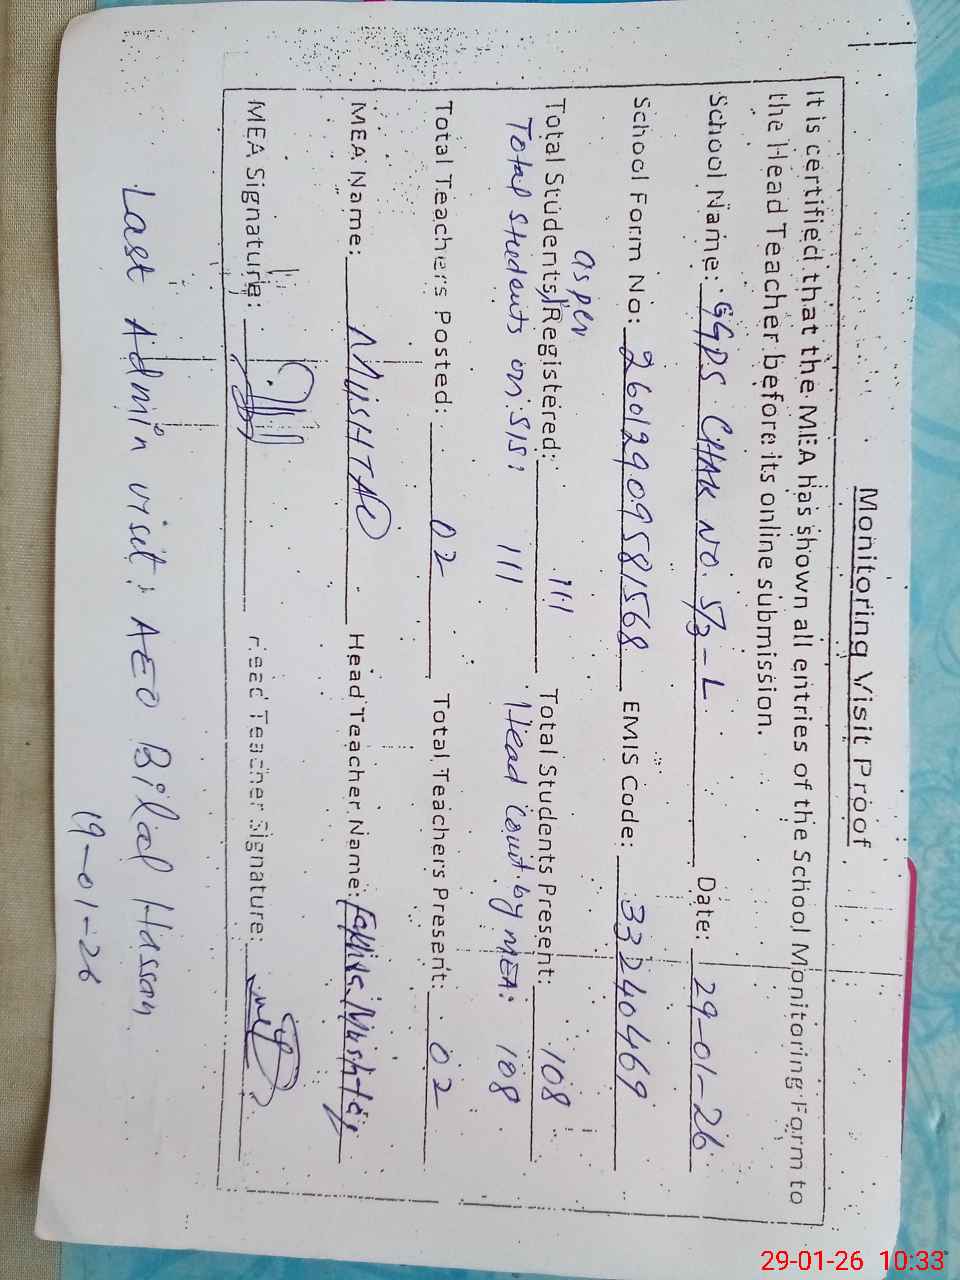 Monitoring Visit Proof
It is certified that the MEA has shown all entries of the School Monitoring Form to
the Head Teacher before its online submission.
School Name: GGPS CHAK NO. 5/3-L Date: 29-01-26
School Form No: 26012909581568 EMIS Code: 33240469
as per
Total Students Registered: 111 Total Students Present: 108
Total students on SIS: 111 Head Count by MEA: 108
Total Teachers Posted: 02 Total Teachers Present: 02
MEA Name: MUSHTAQ Head Teacher Name: Mushtaq
MEA Signature: Head Teacher Signature:
Last Admin visit: AEO Bilal Hassan
19-01-26
29-01-26 10:33